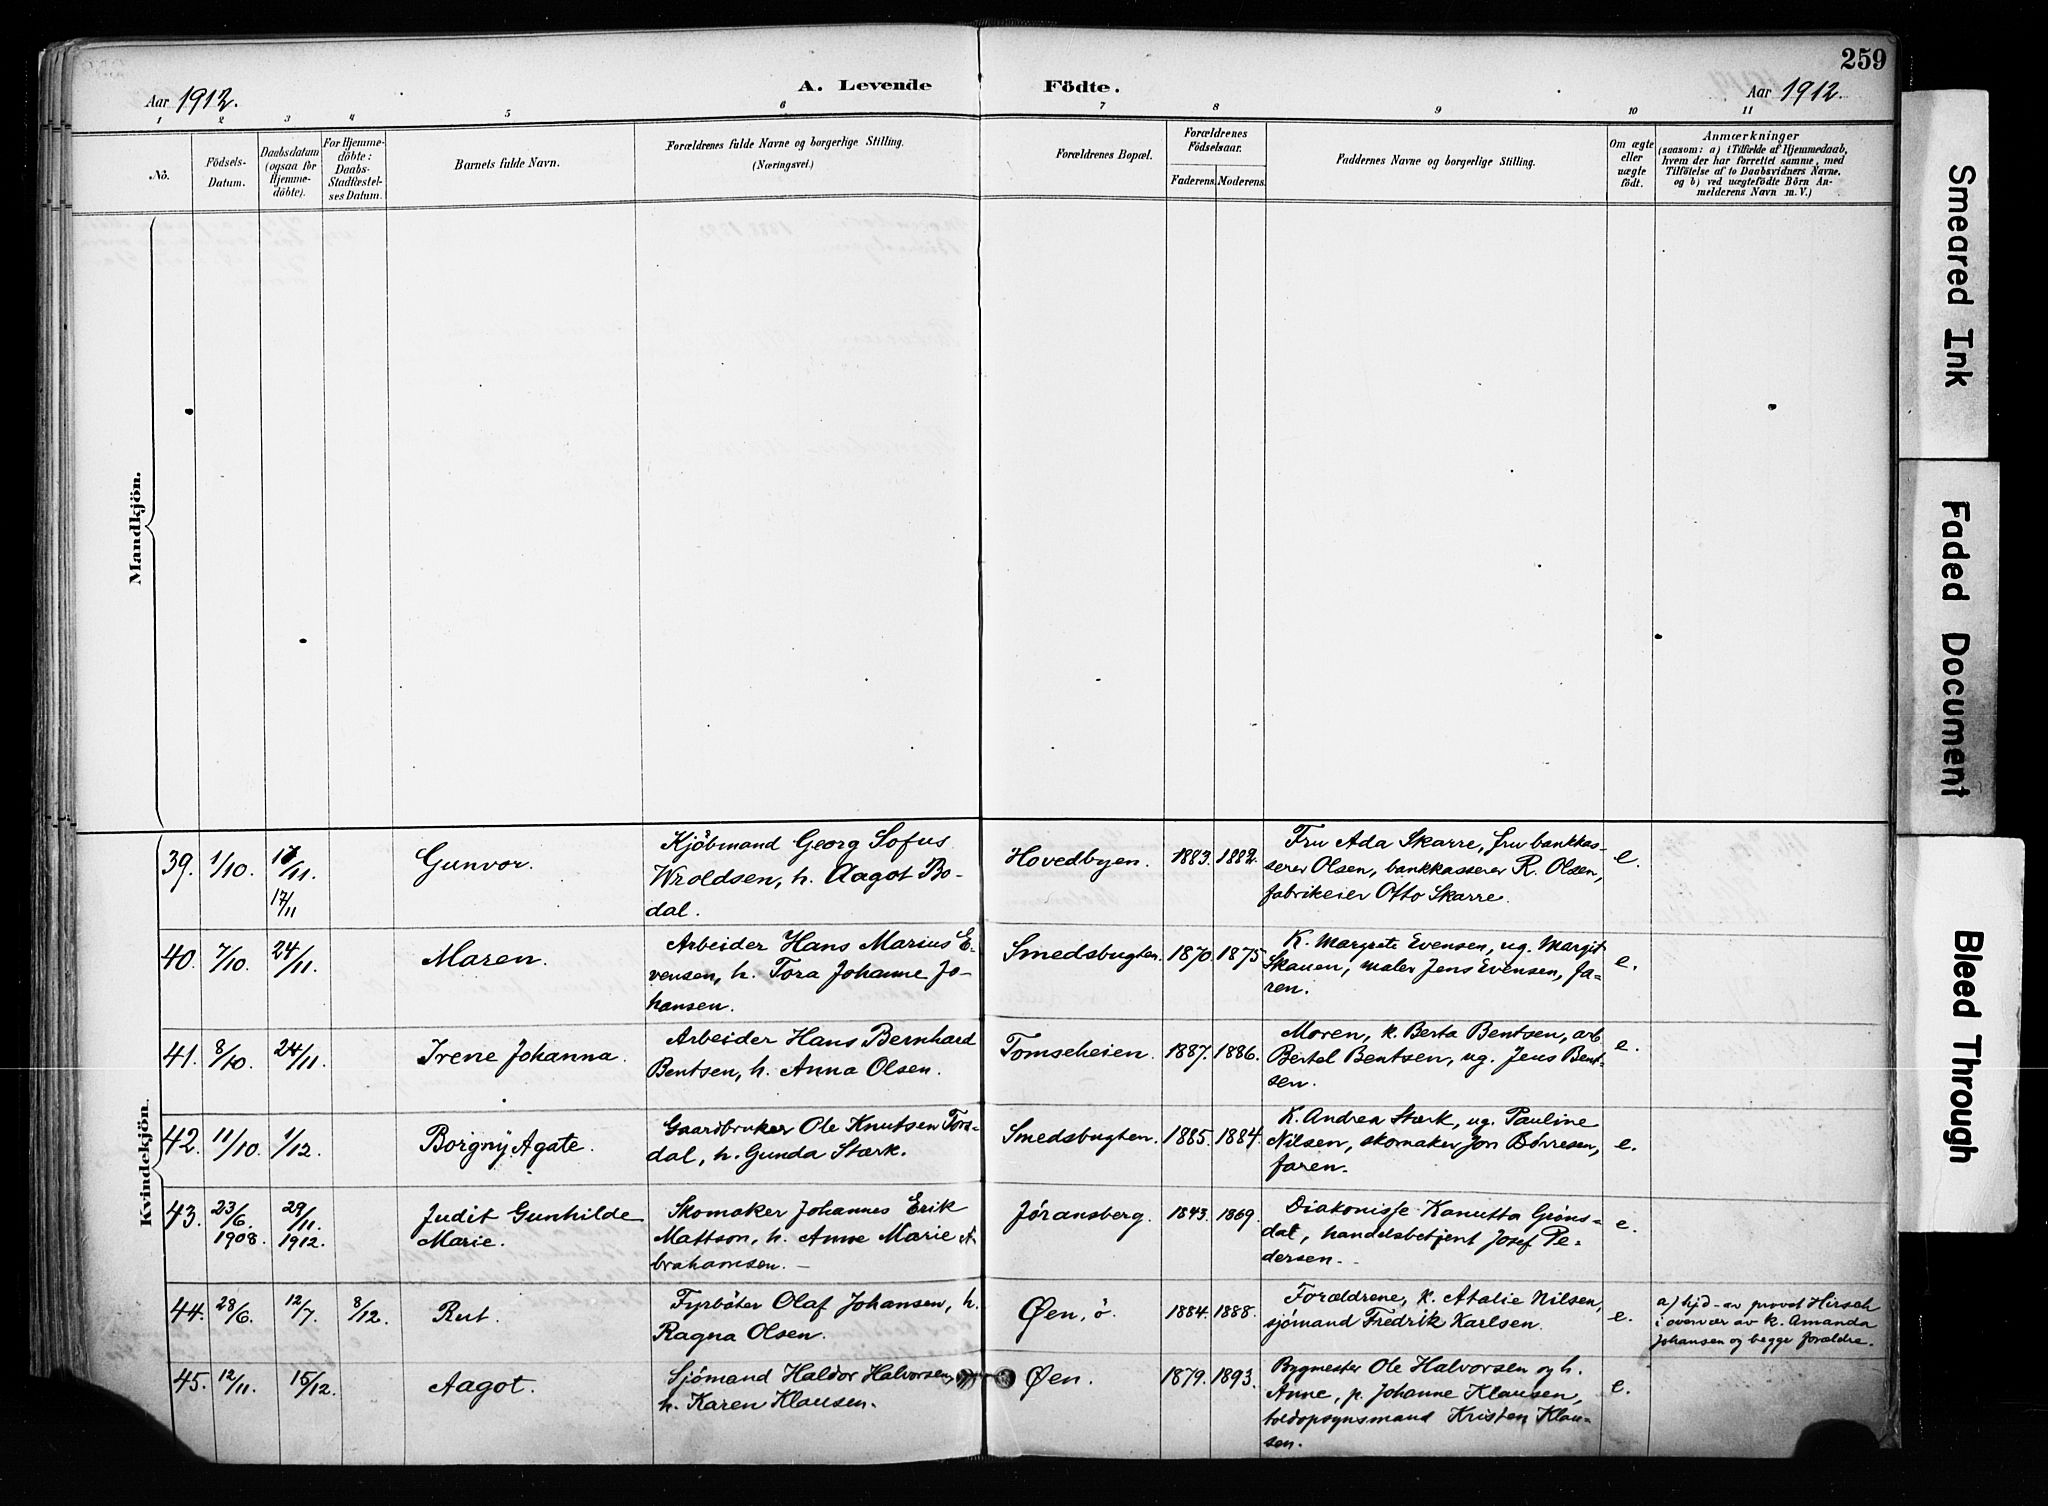 259
Aar 1912.
A. Levende Födte.
Aar 1912.
1 2 3 4 5 6 7 8 9 10 11
No.
Födsels-
Datum.
Daabsdatum
(ogsaa for
Hjemme-
döbte).
For Hjemme-
döbte:
Daabs-
Stadfæstel-
ses Datum.
Barnets fulde Navn.
Forældrenes fulde Navne og borgerlige Stilling.
(Næringsvei.)
Forældrenes Bopæl.
Forældrenes
Födselsaar.
Faderens. Moderens.
Faddernes Navne og borgerlige Stilling.
Om ægte
eller
uægte
födt.
Anmærkninger
(saasom: a) i Tilfælde af Hjemmedaab,
hvem der har forrettet samme, med
Tilföielse af to Daabsvidners Navne,
og b) ved uægtefödte Börn An-
melderens Navn m. V.)
Mandkjön.
Kvindekjön.
39. 1/10. 17/11. 17/11 Gunvor.
Kjöbmand Georg Sofus
Wroldsen, h. Aagot Bo-
dal.
Hovedbyen. 1883. 1882.
Fru Ada Skarre, fru bankkas-
serer Olsen, bankkasserer R. Olsen,
fabrikeier Otto Skarre.
e.
40. 7/10. 24/11. Maren.
Arbeider Hans Marius E-
vensen, h. Tora Johanne Jo-
hansen.
Smedsbugten. 1870. 1875.
K. Margrete Evensen, ug. Margit
Skauen, maler Jens Evensen, fa-
ren.
e.
41. 8/10. 24/11. Irene Johanna.
Arbeider Hans Bernhard
Bentsen, h. Anna Olsen.
Tomseheien. 1887. 1886.
Moren, k. Berta Bentsen, arb.
Bertel Bentsen, ug. Jens Bent-
sen.
e.
42. 11/10. 1/12. Borgny Agate.
Gaardbruker Ole Knutsen Tors-
dal, h. Gunda Stærk.
Smedsbugten. 1885. 1884.
K. Andrea Stærk, ug. Pauline
Nilsen, skomaker Jon Børresen,
faren.
e.
43. 23/6. 1908. 29/11. 1912. Judit Gunhilde
Marie.
Skomaker Johannes Erik
Mattson, h. Anne Marie A-
brahamsen. –
Jøransberg. 1843. 1869.
Diakonisse Kanutta Grøns-
dal, handelsbetjent Josef Pe-
dersen.
e.
44. 28/6. 12/7. 8/12. Rut.
Fyrbøter Olaf Johansen, h.
Ragna Olsen.
Øen, ö. 1884. 1888.
Forældrene, k. Atalie Nilsen,
sjømand Fredrik Karlsen.
e.
a) hjd – av provst Hirsch
i overvær av k. Amanda
Johansen og begge forældre.
45. 12/11. 15/12. Aagot.
Sjømand Haldor Halvorsen
h. Karen Klausen.
Øen. 1879. 1893.
Bygmester Ole Halvorsen og h.
Anne, p. Johanne Klausen,
toldopsynsmand Kristen Klau-
sen.
e.
Smeared Ink
Faded Document
Bleed Through